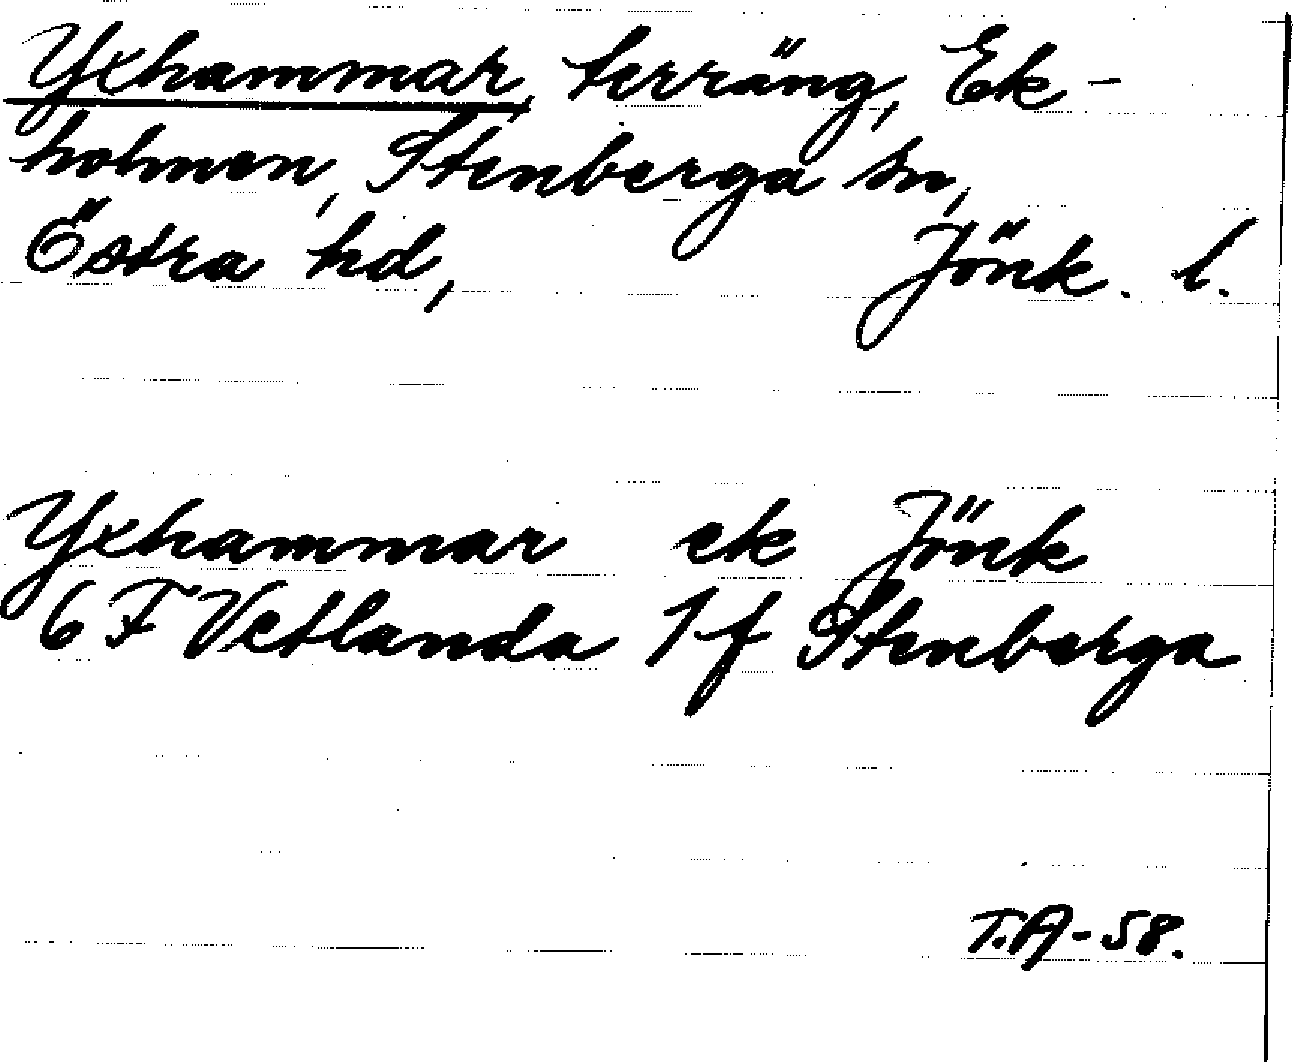 Yxhammar, terräng, Ek-
holmen, Stenberga sn,
Östra hd, Jönk. l.
Yxhammar ek Jönk
6 F Vetlanda 1 f Stenberga
T.A-58.